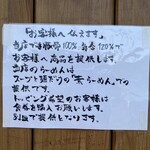 「お客様へ伝えます」
当店で　　100% 　120%で
お客様へ商品を提供します。
当店のらーめんは
スープと麺だけの「素らーめん」での
提供です。
トッピング希望のお客様に
食券を購入お願いします。
別皿で提供となります。